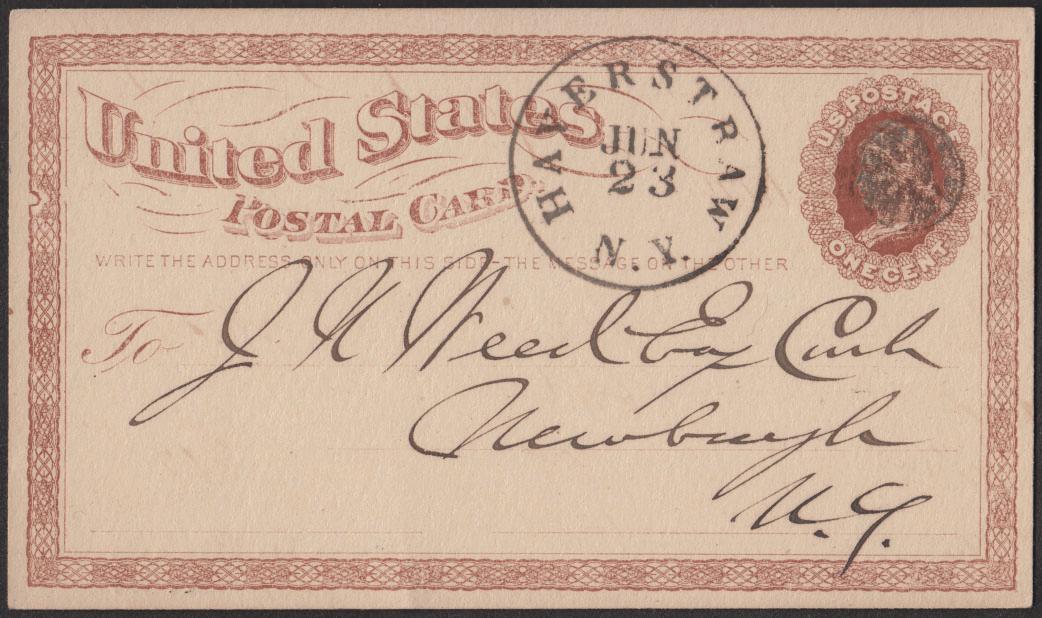 United States
POSTAL CARD.
WRITE THE ADDRESS ONLY ON THIS SIDE—THE MESSAGE ON THE OTHER
HAVERSTRAW
JUN
23
N.Y.
U.S. POSTAGE
ONE CENT
To J. N. Weed Esq Cash
Newburgh
N.Y.